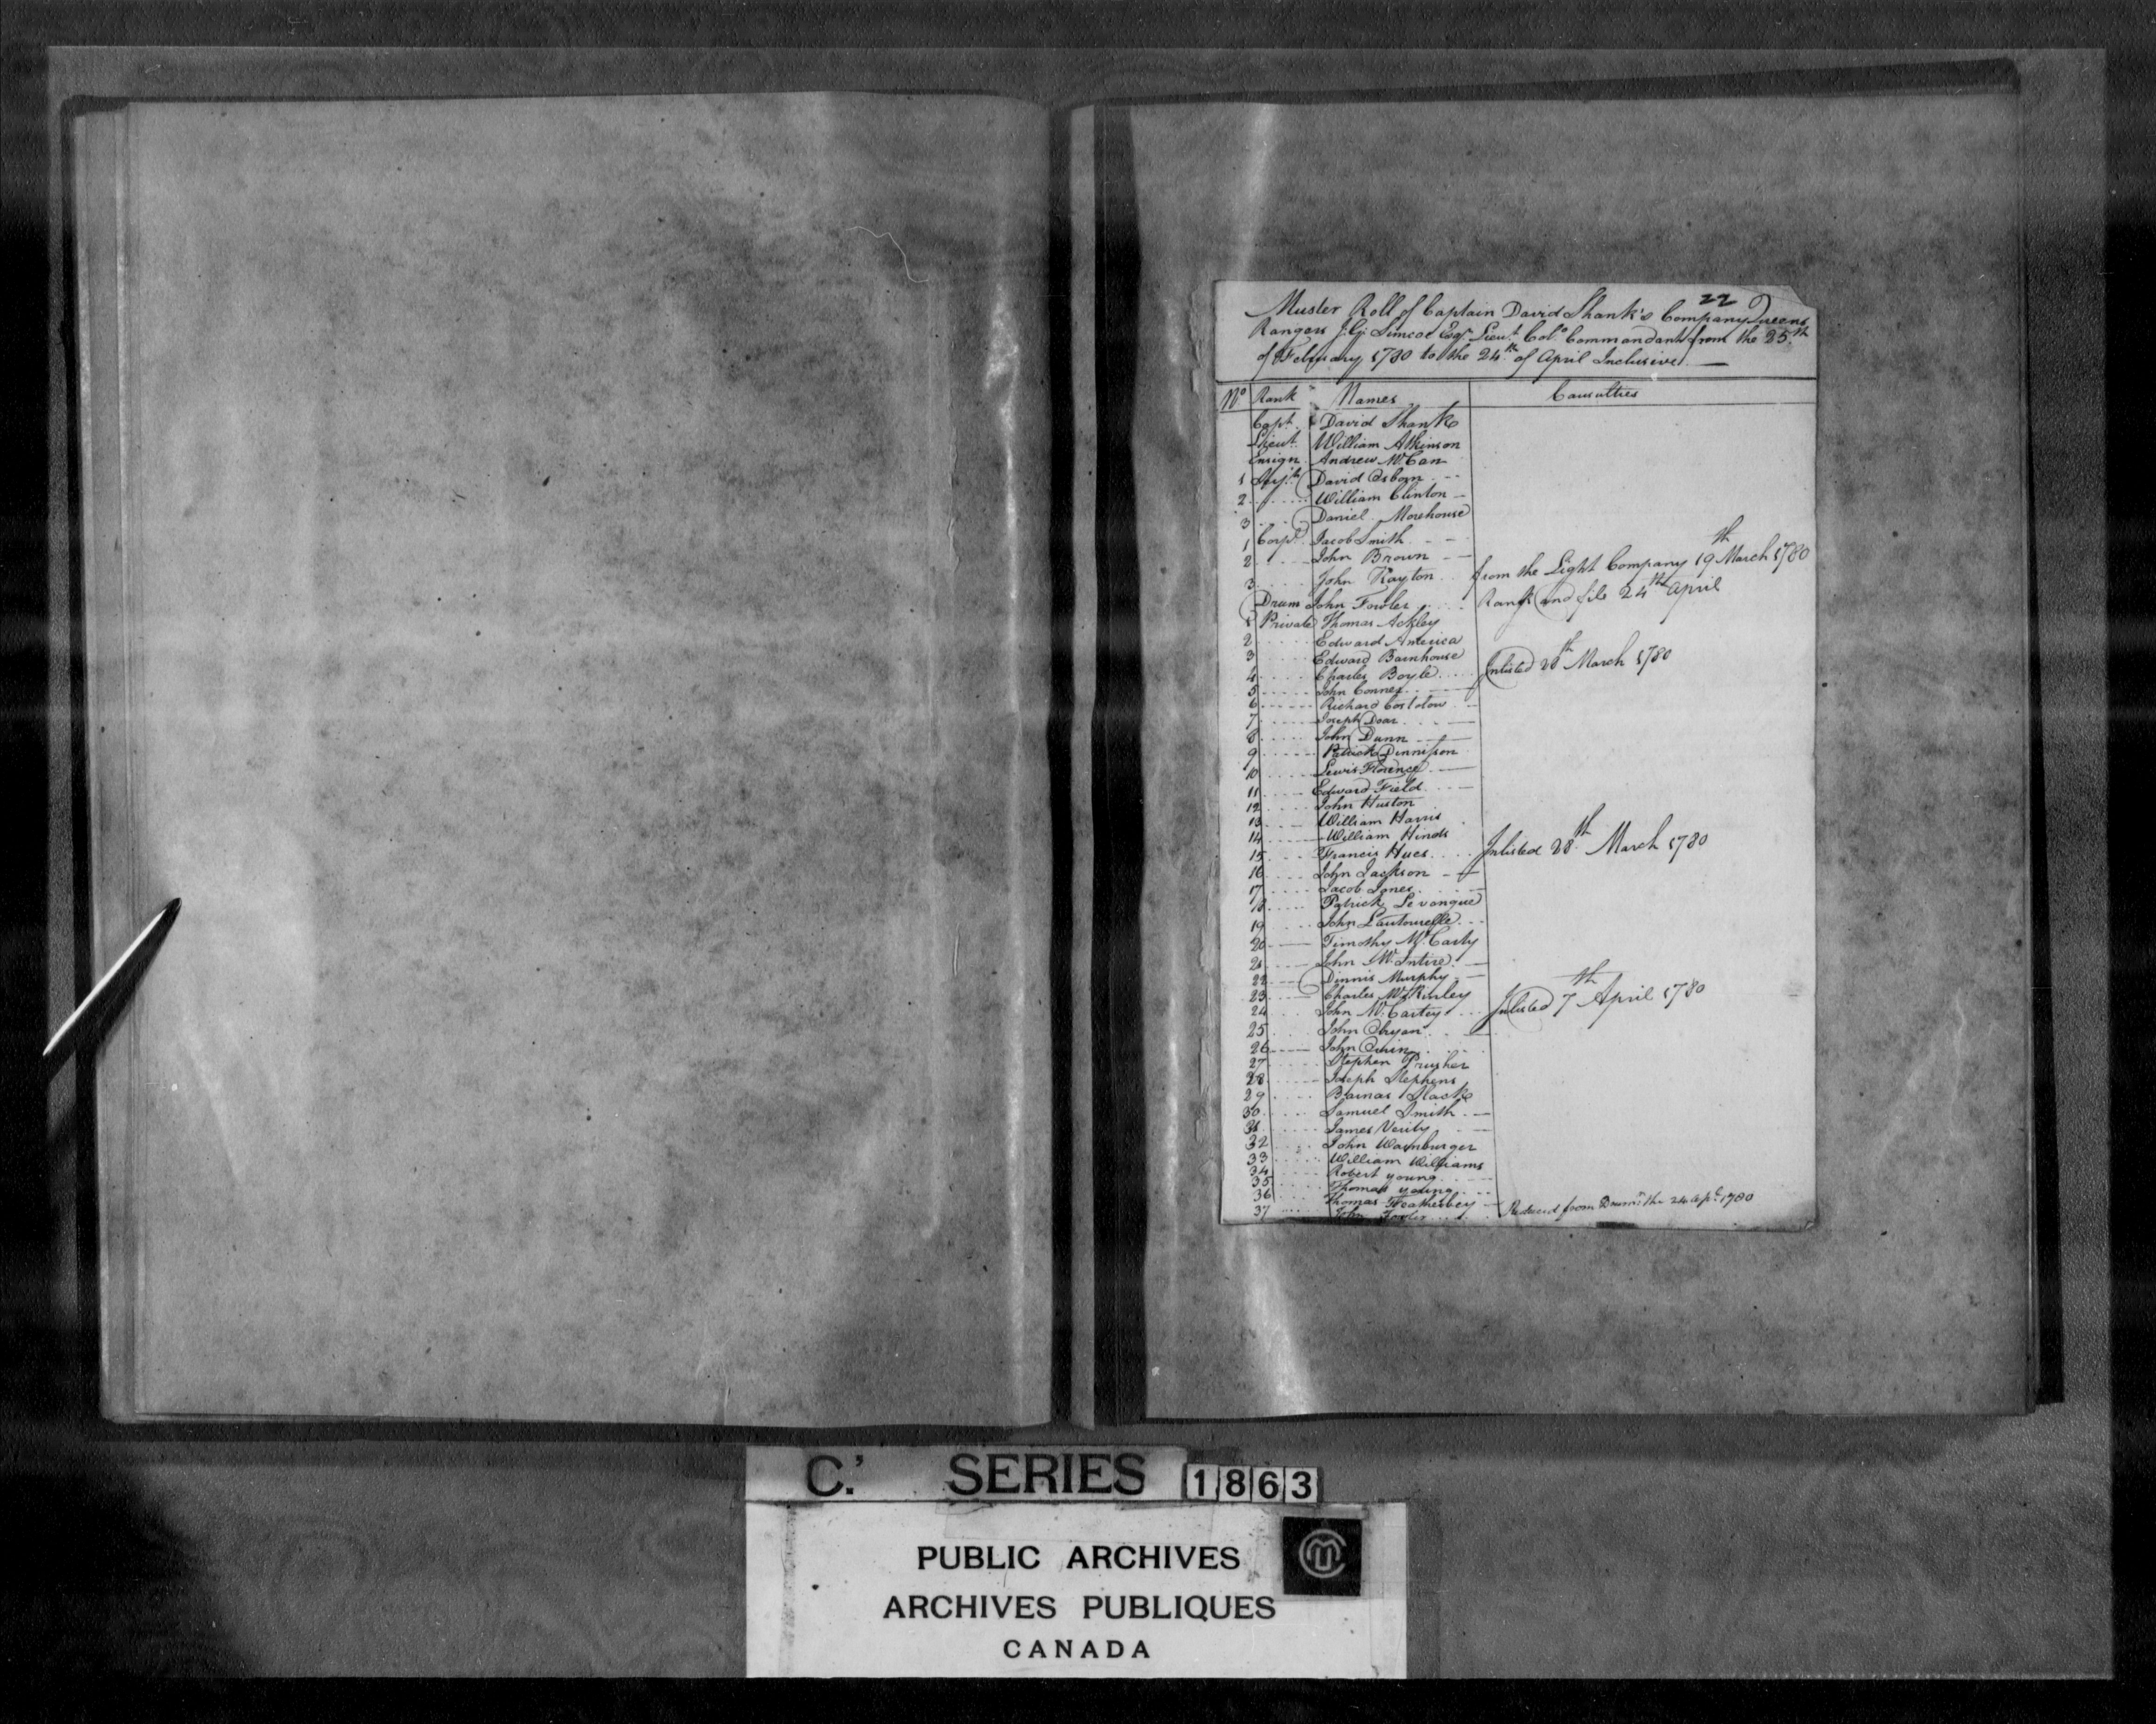 22
Muster Roll of Captain David Shank's Company Queens
Rangers J. G. Simcoe Esqr. Lieut. Colo. Commandant from the 25th
of February 1780 to the 24th of April Inclusive
No. Rank Names Causulties
Capt. David Shank
Lieut. William Atkinson
Ensign Andrew McCan
1 Serjts David Osborn
2 William Clinton
3 Daniel Morehouse
1 Corpl. Jacob Smith
2 John Brown
3 John Rayton from the Light Company 19th March 1780
Drum John Fowler Rank and file 24th April
1 Private Thomas Ackley
2 Edward America
3 Edward Barnhouse
4 Charles Boyle Inlisted 28th March 1780
5 John Conner
6 Richard Costolow
7 Joseph Doar
8 John Dunn
9 Patrick Dennisson
10 Lewis Florence
11 Edward Field
12 John Huston
13 William Harris
14 William Hinds
15 Francis Hues Inlisted 28th March 1780
16 John Jackson
17 Jacob Jones
18 Patrick Levanque
19 John Lautourelle
20 Timothy McCarty
21 John McIntire
22 Dinnis Murphy
23 Charles McKinley
24 John McCartey Inlisted 7th April 1780
25 John Obryan
26 John
27 Stephen Prusher
28 Joseph Stephens
29 Barnas Slack
30 Samuel Smith
31 James Verity
32 John Warnburger
33 William Williams
34 Robert young
35 Thomas young
36 Thomas Featherbey
37 John Fowler Reduced from Drumr. the 24 Apl. 1780
C.' SERIES 1863
PUBLIC ARCHIVES
ARCHIVES PUBLIQUES
CANADA